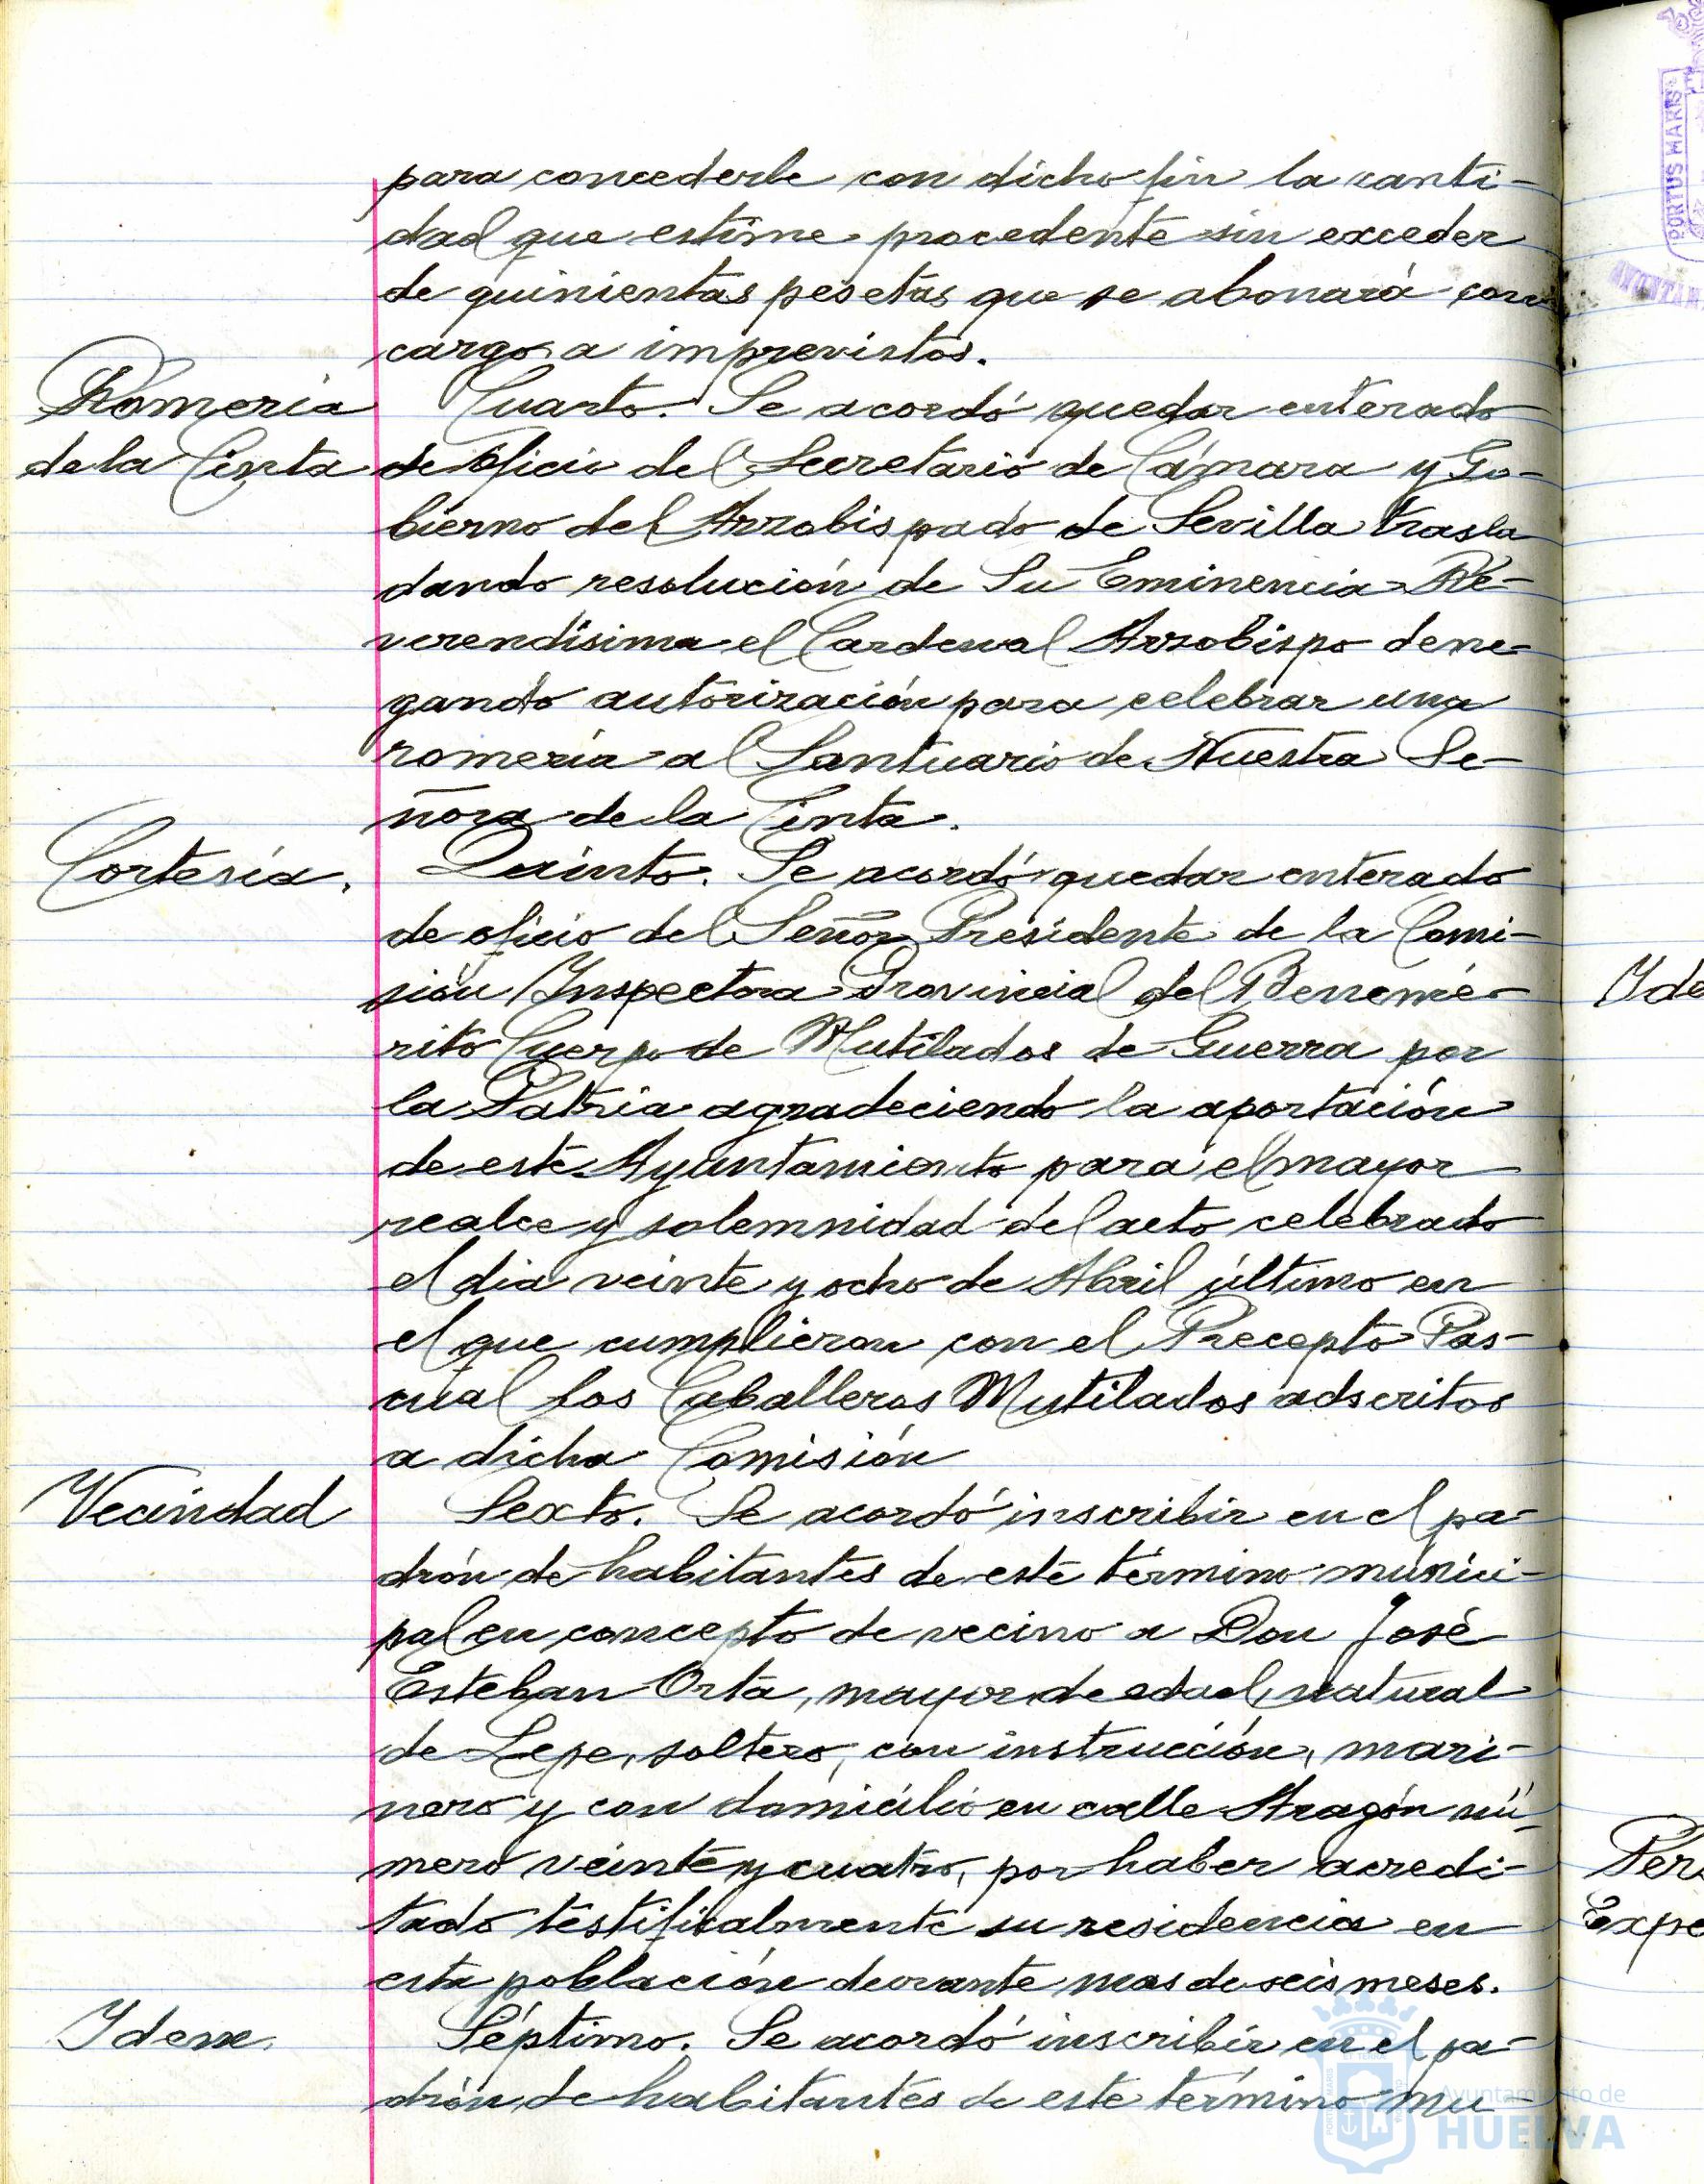 para concederle con dicho fin la canti-
dad que estime procedente sin exceder
de quinientas pesetas que se abonará con
cargo a imprevistos.
Romería
de la Cinta
Cuarto. Se acordó quedar enterado
de oficio del Secretario de Cámara y Go-
bierno del Arzobispado de Sevilla trasla
dando resolución de Su Eminencia Re-
verendísima el Cardenal Arzobispo dene-
gando autorización para celebrar una
romería al Santuario de Nuestra Se-
ñora de la Cinta.
Cortesía.
Quinto. Se acordó quedar enterado
de oficio del Señor Presidente de la Comi-
sión Inspectora Provincial del Benemé-
rito Cuerpo de Mutilados de Guerra por
la Patria agradeciendo la aportación
de este Ayuntamiento para el mayor
realce y solemnidad del acto celebrado
el dia veinte y ocho de Abril último en
el que cumplieron con el Precepto Pas-
cual los Caballeros Mutilados adscritos
a dicha Comisión
Vecindad
Sexto. Se acordó inscribir en el pa-
drón de habitantes de este término munici-
pal en concepto de vecino a Don José
Esteban Orta, mayor de edad, natural
de Lepe, soltero, con instrucción, mari-
nero y con domicilio en calle Aragón nú-
mero veinte y cuatro, por haber acredi-
tado testificalmente su residencia en
esta población durante mas de seis meses.
Idem.
Séptimo. Se acordó inscribir en el pa-
drón de habitantes de este término mu-
Ayuntamiento de
HUELVA
PORTUS MARIS
AYUNTAM
Ide
Per
Expe